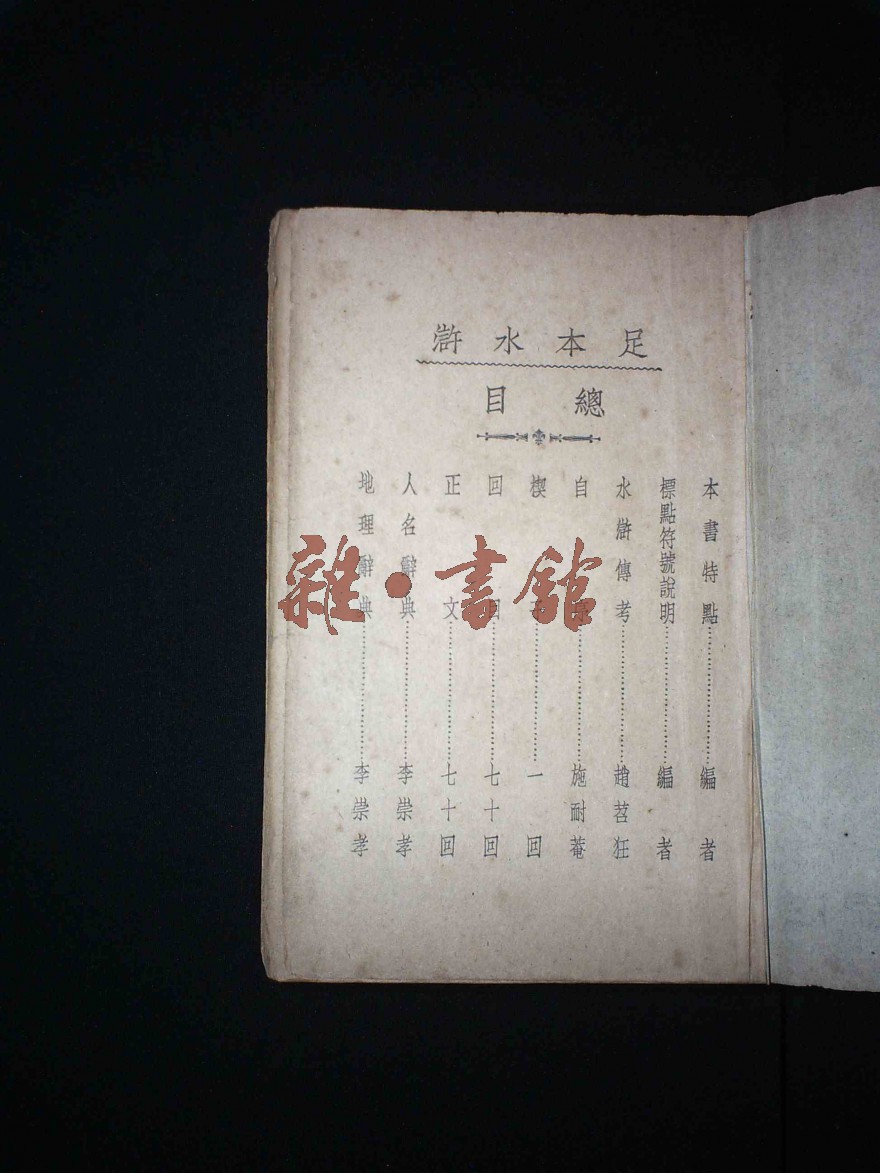 足本水滸
總目
本書特點……編者
標點符號說明……編者
水滸傳考……趙苕狂
自序……施耐菴
楔子……一回
回目……七十回
正文……七十回
人名辭典……李崇孝
地理辭典……李崇孝
雜·書館